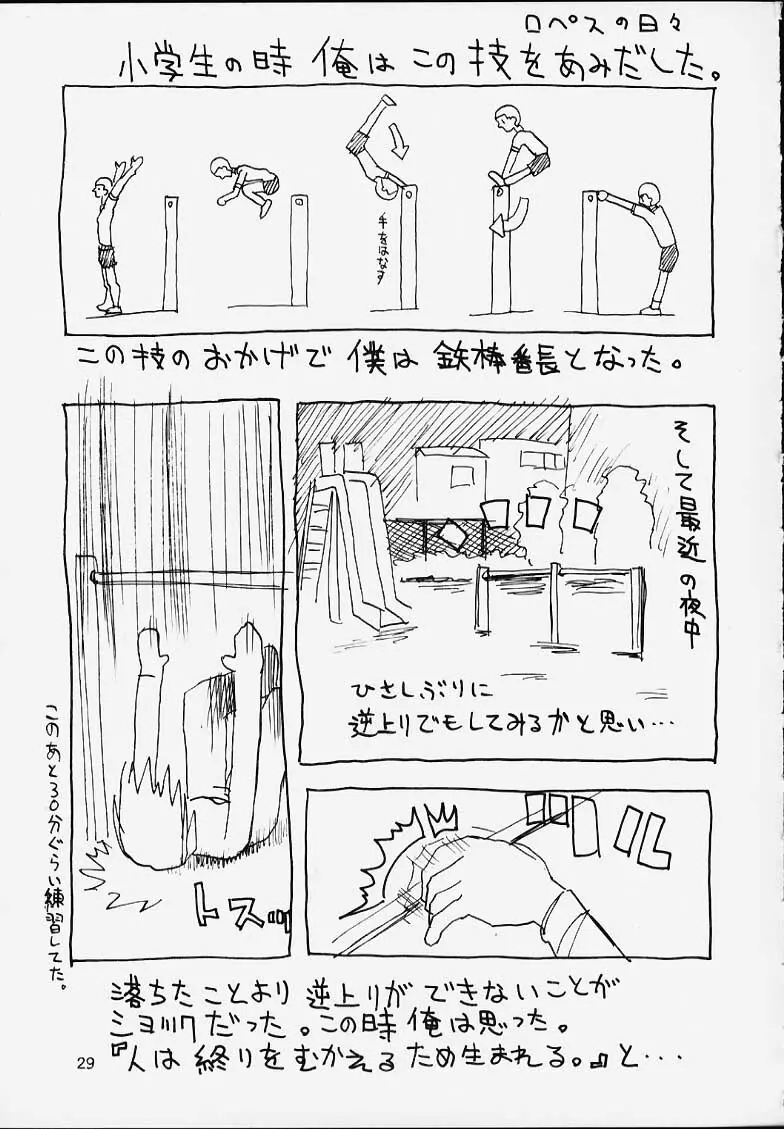 ロペスの日々
小学生の時 俺は この技をあみだした。
手をはなす
この技のおかげで 僕は 鉄棒番長となった。
そして最近の夜中
ひさしぶりに
逆上りでもしてみるかと思い…
ツルル
トスッ
このあと30分ぐらい練習してた。
落ちたことより 逆上りが できないことが
ショックだった。この時 俺は思った。
『人は 終りを むかえる ため生まれる。』と…
29